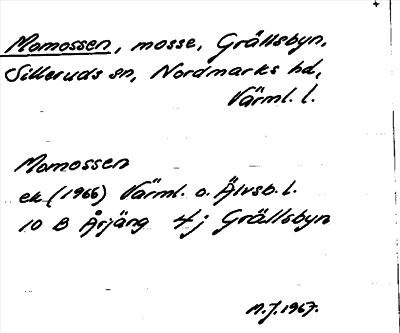 Momossen, mosse, Grällsbyn,
Silleruds sn, Nordmarks hd,
Värml. l.
Momossen
ek (1966) Värml. o. Älvsb. l.
10 B Årjäng 4j Grällsbyn
N.J. 1967.